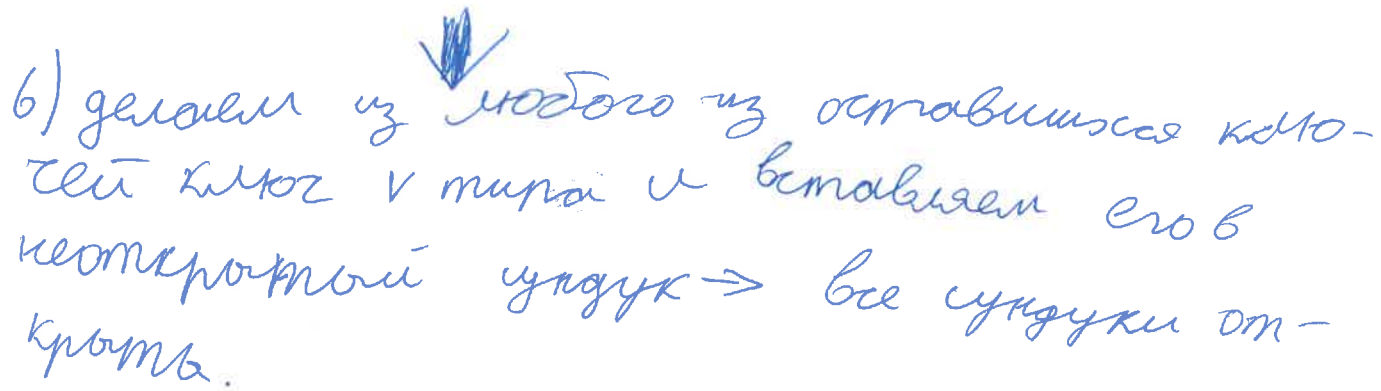 6) делаем из любого из оставшихся клю-
чей ключ v типа и вставляем его в
неоткрытый сундук → все сундуки от-
крыты.